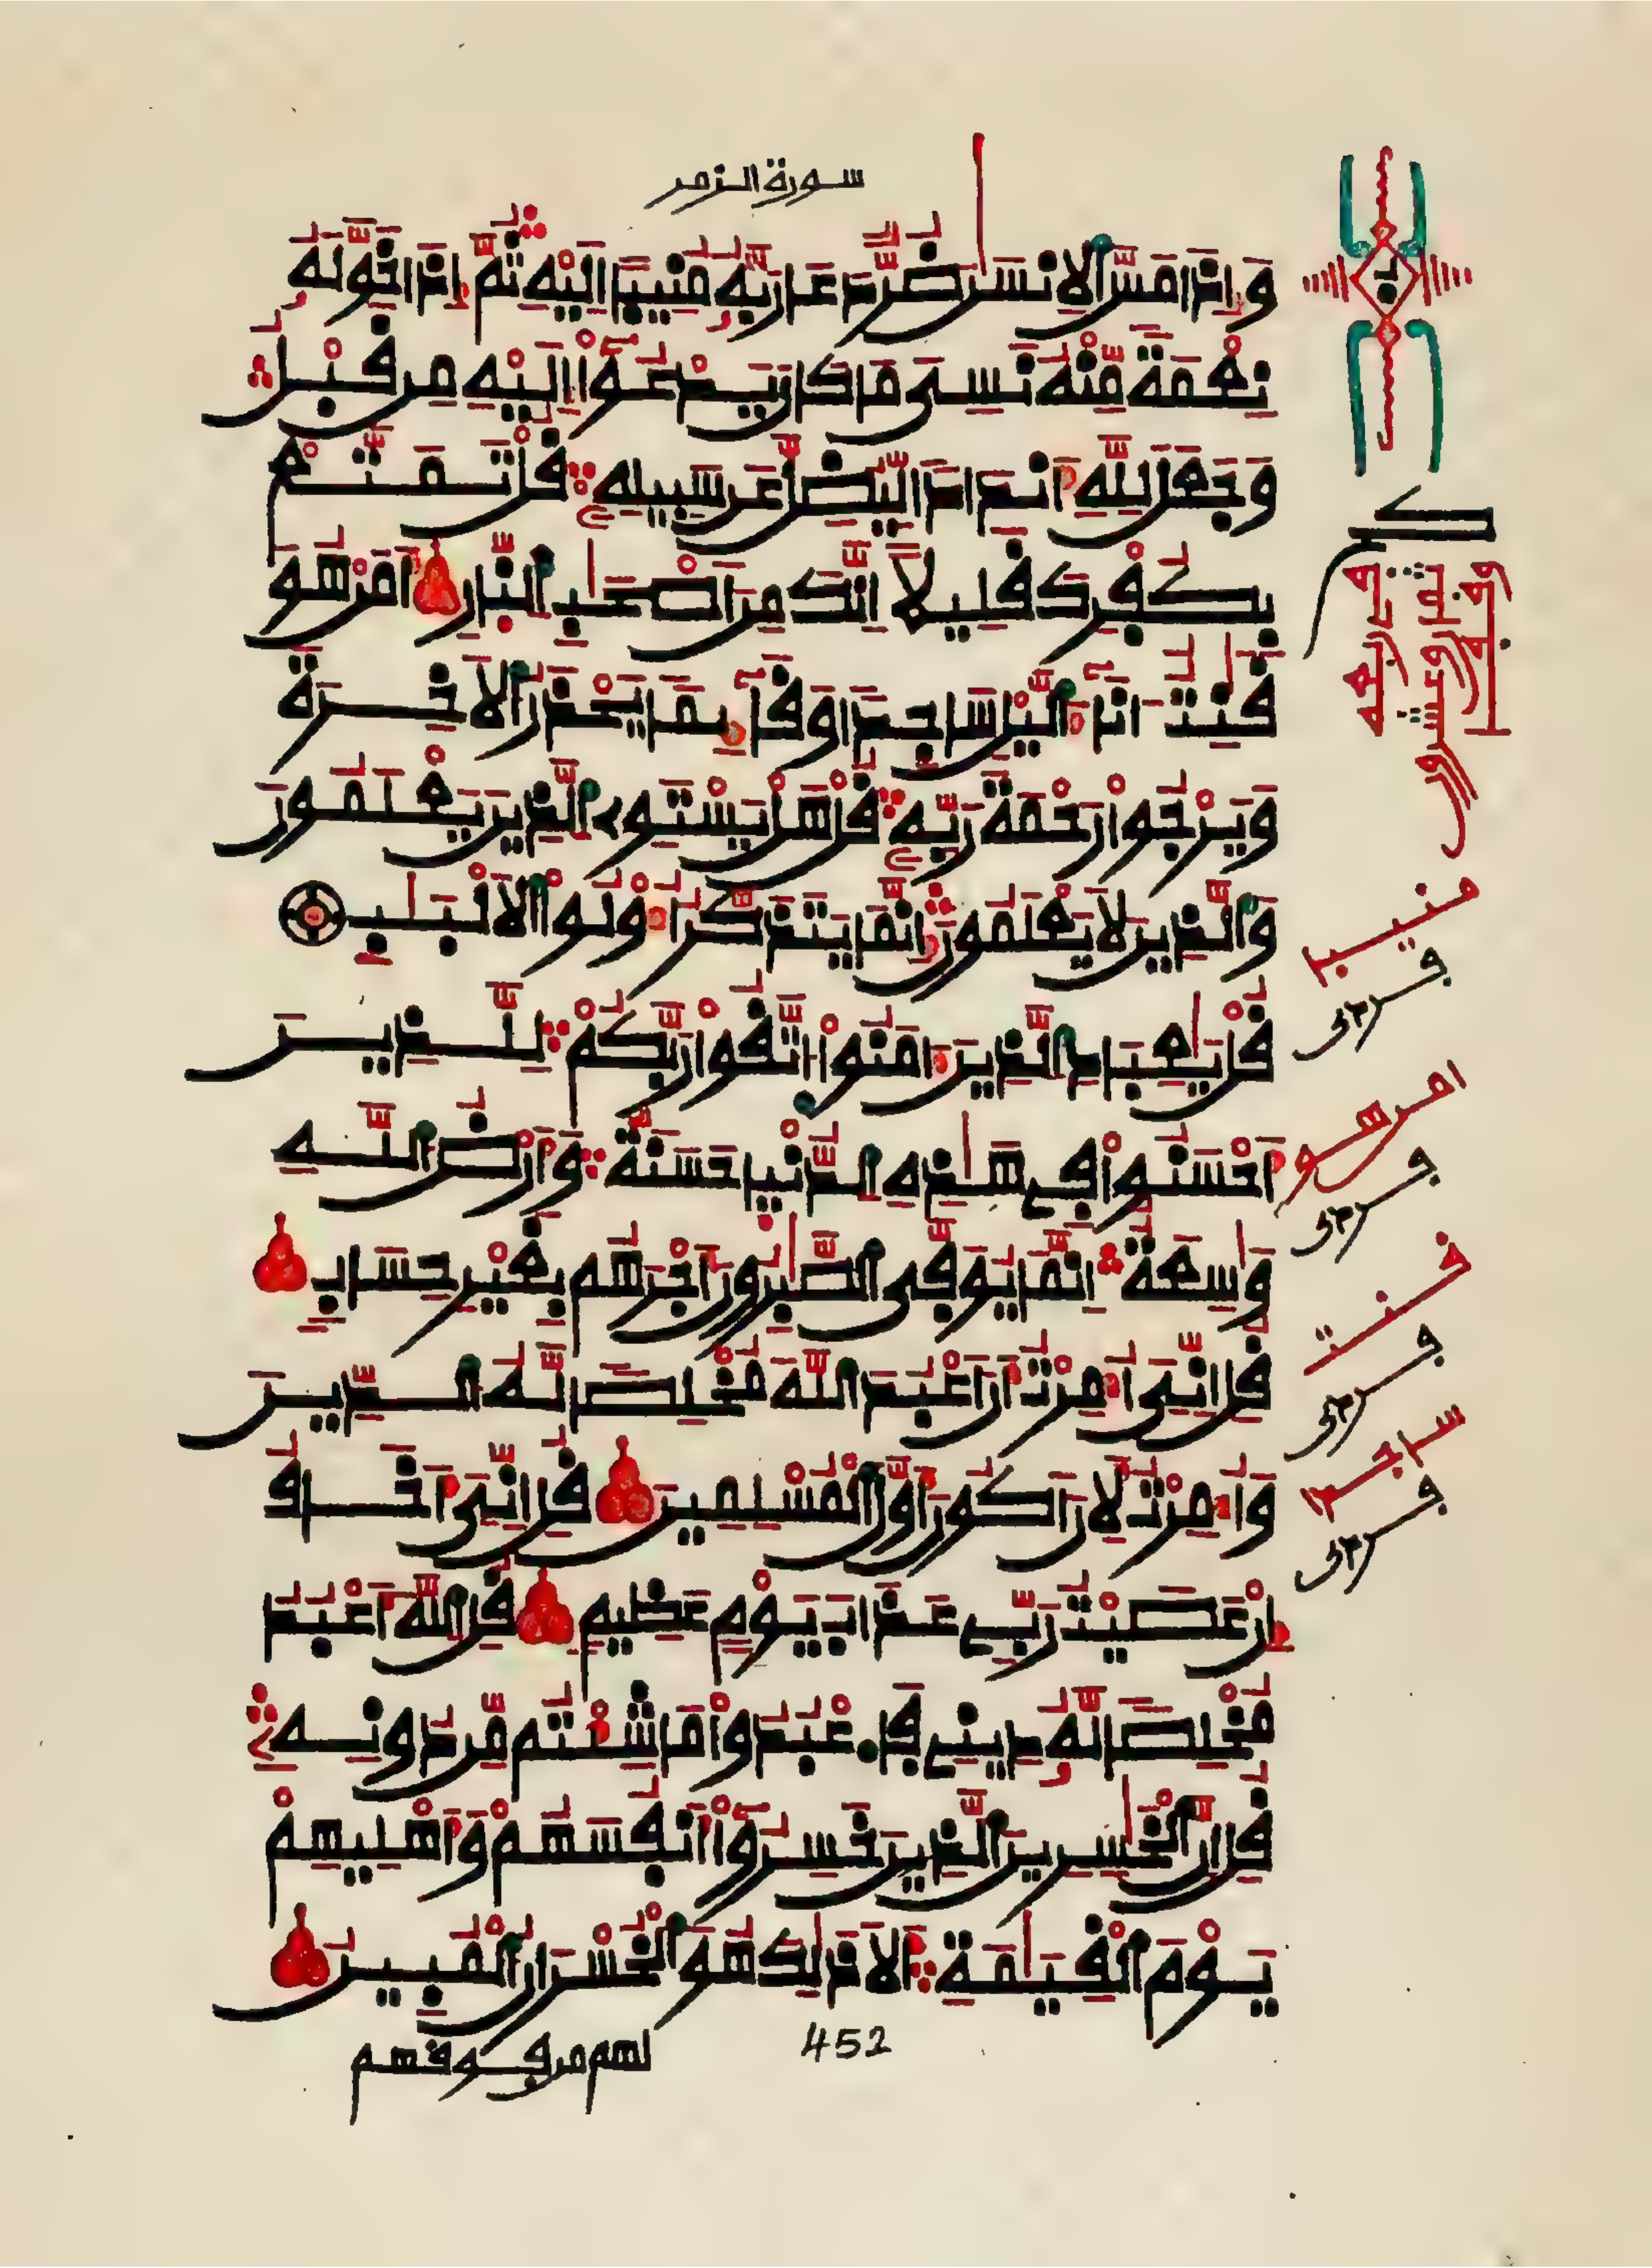 سورة الزمر
وَإِذَا مَسَّ ٱلِانسَٰنَ ضُرٌّ دَعَا رَبَّهُۥ مُنِيبًا اِلَيْهِ ثُمَّ إِذَا خَوَّلَهُۥ
نِعْمَةً مِّنْهُ نَسِىَ مَا كَانَ يَدْعُوٓاْ إِلَيْهِ مِن قَبْلُ
وَجَعَلَ لِلهِ أَندَادًا لِّيُضِلَّ عَن سَبِيلِهِۦ قُلْ تَمَتَّعْ
بِكُفْرِكَ قَلِيلًا اِنَّكَ مِنَ اَصْحَٰبِ ٱلنَّارِ أَمَنْ هُوَ
قَٰنِتٌ اٰنَآءَ ٱلَّيْلِ سَاجِدًا وَقَآئِمًا يَحْذَرُ ٱلَاخِرَةَ
وَيَرْجُواْ رَحْمَةَ رَبِّهِۦ قُلْ هَلْ يَسْتَوِى ٱلَّذِينَ يَعْلَمُونَ
وَٱلَّذِينَ لَا يَعْلَمُونَ إِنَّمَا يَتَذَكَّرُ أُوْلُواْ ٱلَالْبَٰبِ
قُلْ يَٰعِبَادِ ٱلَّذِينَ ءَامَنُواْ ٱتَّقُواْ رَبَّكُمْ لِلَّذِينَ
أَحْسَنُواْ فِى هَٰذِهِ ٱلدُّنْيَا حَسَنَةٌ وَأَرْضُ ٱللَّهِ
وَٰسِعَةٌ اِنَّمَا يُوَفَّى ٱلصَّٰبِرُونَ أَجْرَهُم بِغَيْرِ حِسَابٍ
قُلِ اِنِّىَ أُمِرْتُ أَنَ اَعْبُدَ ٱللَّهَ مُخْلِصًا لَّهُ ٱلدِّينَ
وَأُمِرْتُ لِأَنَ اَكُونَ أَوَّلَ ٱلْمُسْلِمِينَ قُلِ اِنِّىَ أَخَافُ
إِنْ عَصَيْتُ رَبِّى عَذَابَ يَوْمٍ عَظِيمٍ قُلِ ٱللَّهَ أَعْبُدُ
مُخْلِصًا لَّهُۥ دِينِى فَاعْبُدُواْ مَا شِئْتُم مِّن دُونِهِۦ
قُلِ اِنَّ ٱلْخَٰسِرِينَ ٱلَّذِينَ خَسِرُوٓاْ أَنفُسَهُمْ وَأَهْلِيهِمْ
يَوْمَ ٱلْقِيَٰمَةِ أَلَا ذَٰلِكَ هُوَ ٱلْخُسْرَانُ ٱلْمُبِينُ
452
لهم من فوقهم
منيبا
امن هو
قنت
ساجدا